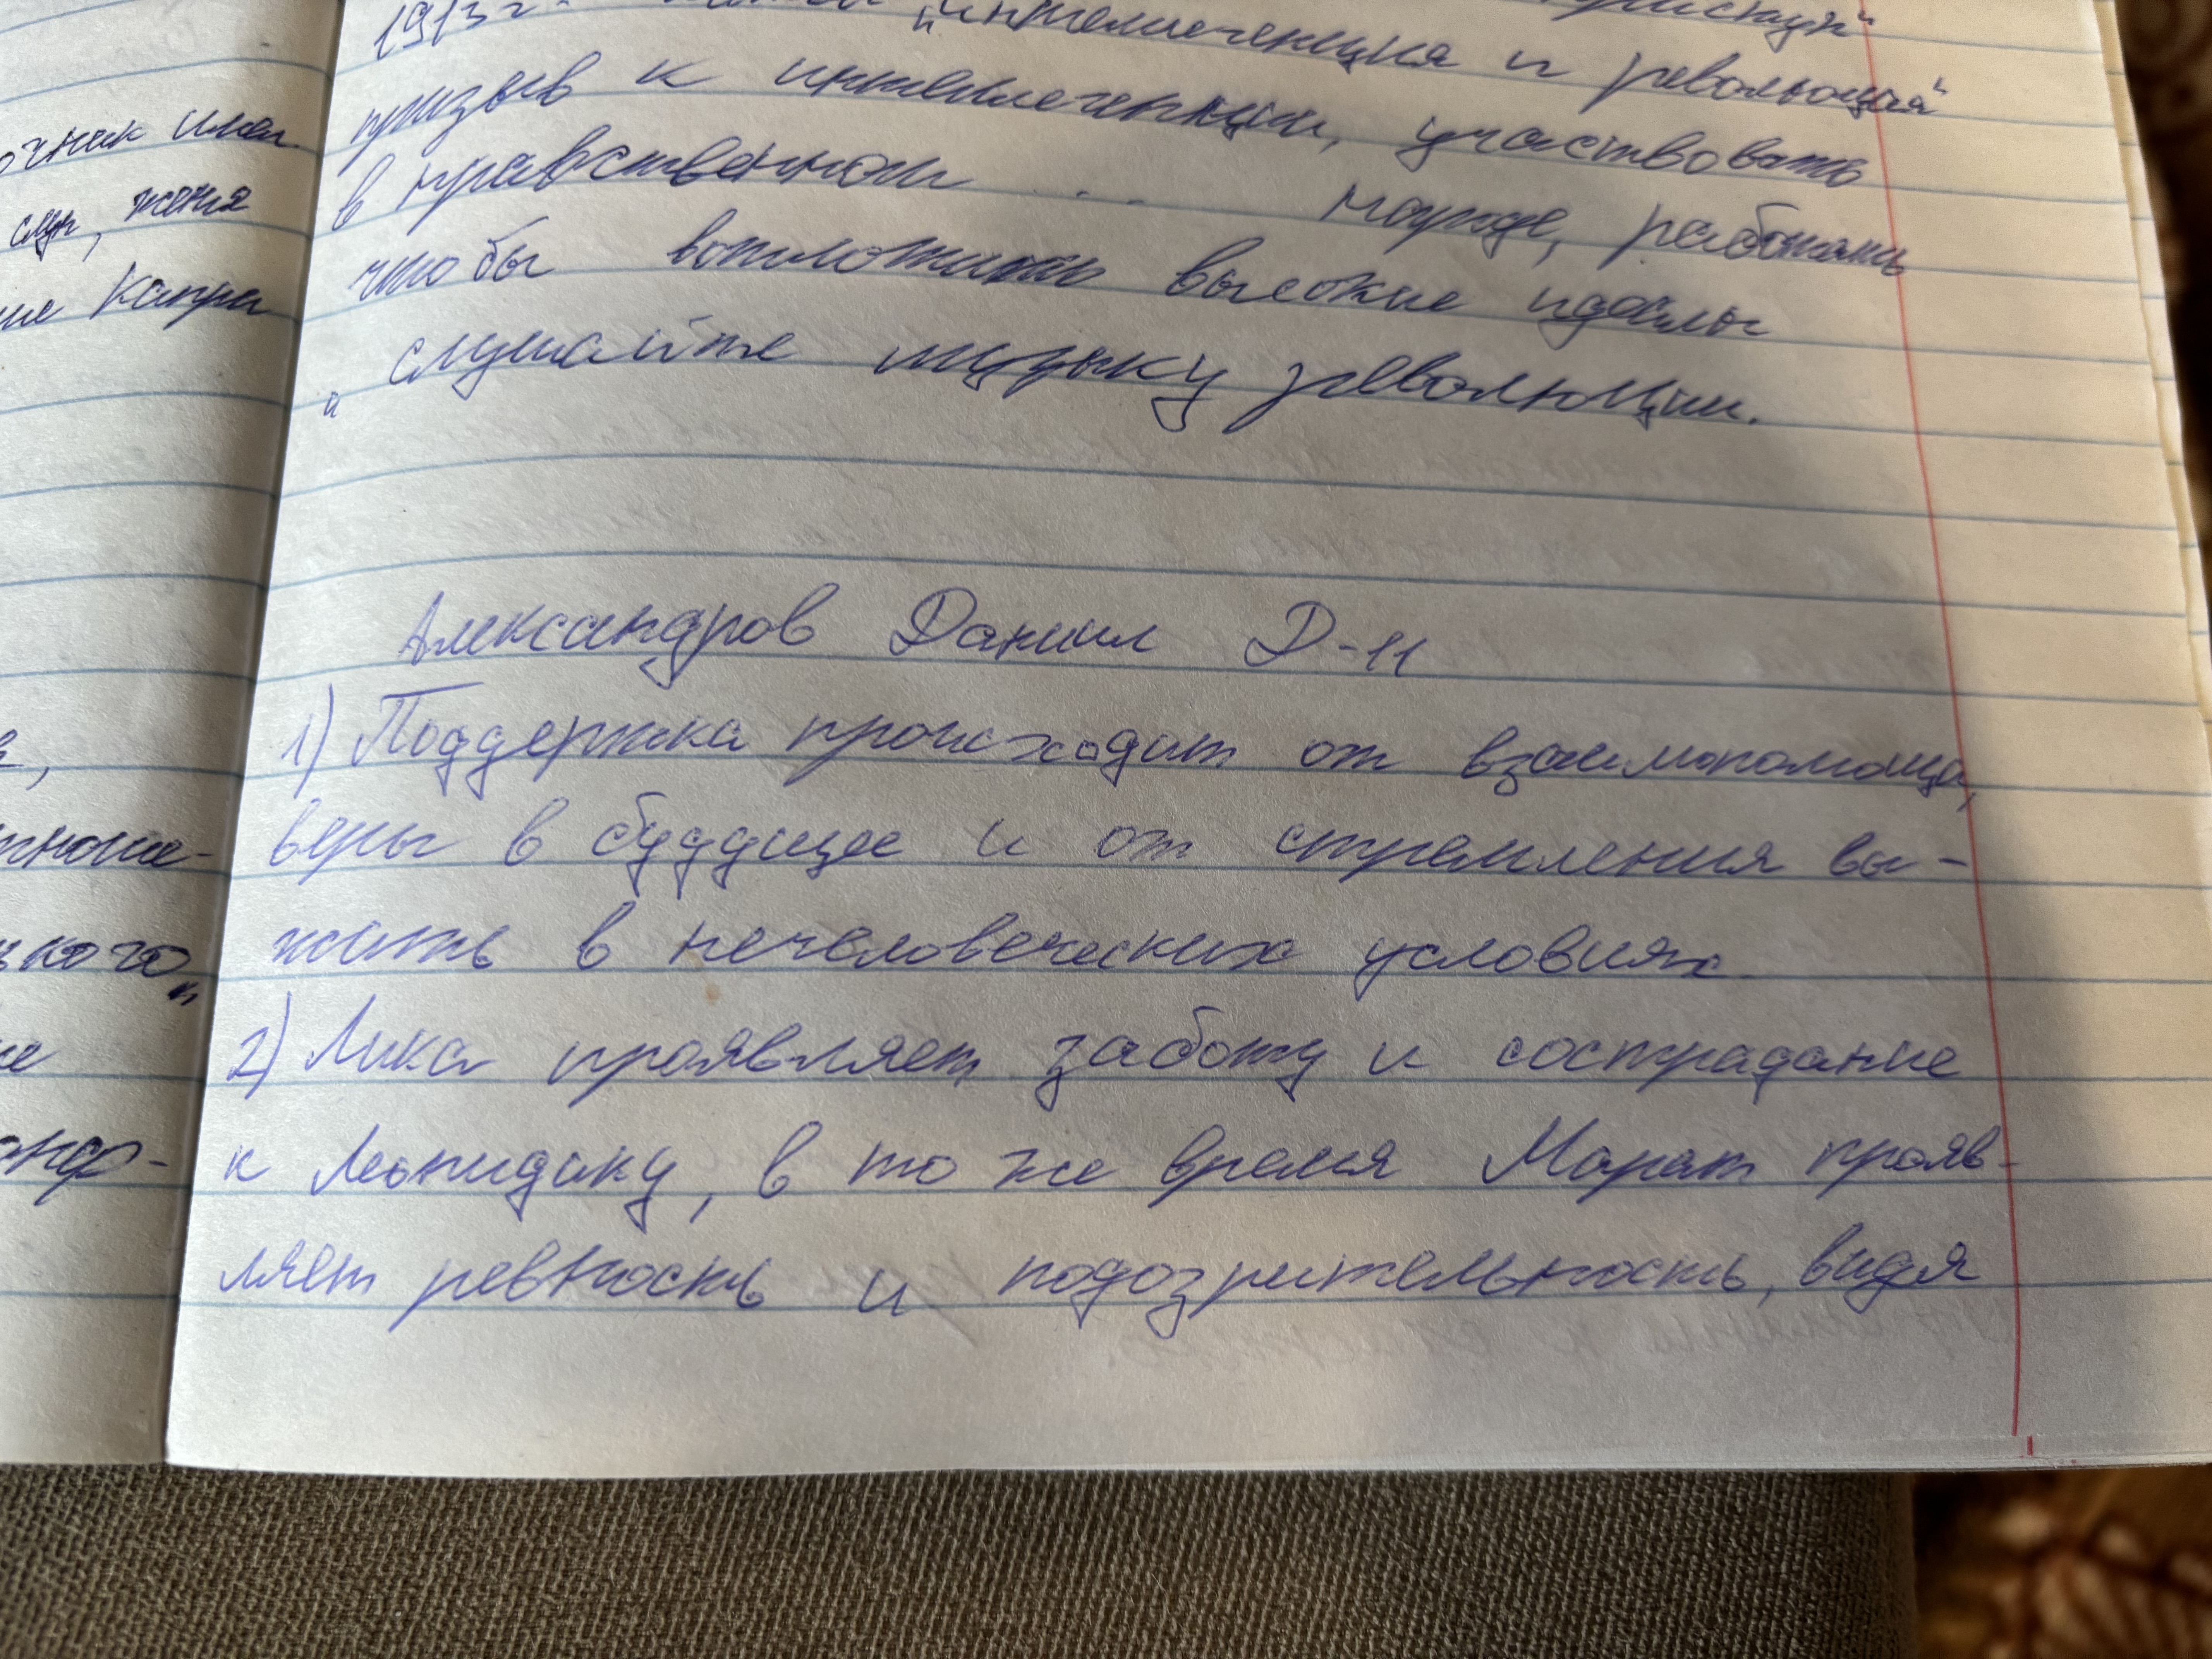 очник имел
слух, меня
ие Капри
ького"
1913г.
"интеллегенция и революция"
призыв к интеллегенции, участвовать
в нравственном ... народе, работать
чтобы воплотить высокие идеалы
" слушайте музыку революции.
Александров Даниил Д-11
1) Поддержка происходит от взаимопомощи,
веры в буддущее и от стремления вы-
жить в нечеловеческих условиях
2) Лика проявляет заботу и сострадание
к Леонидику, в то же время Марат прояв-
ляет ревность и подозрительность, видя